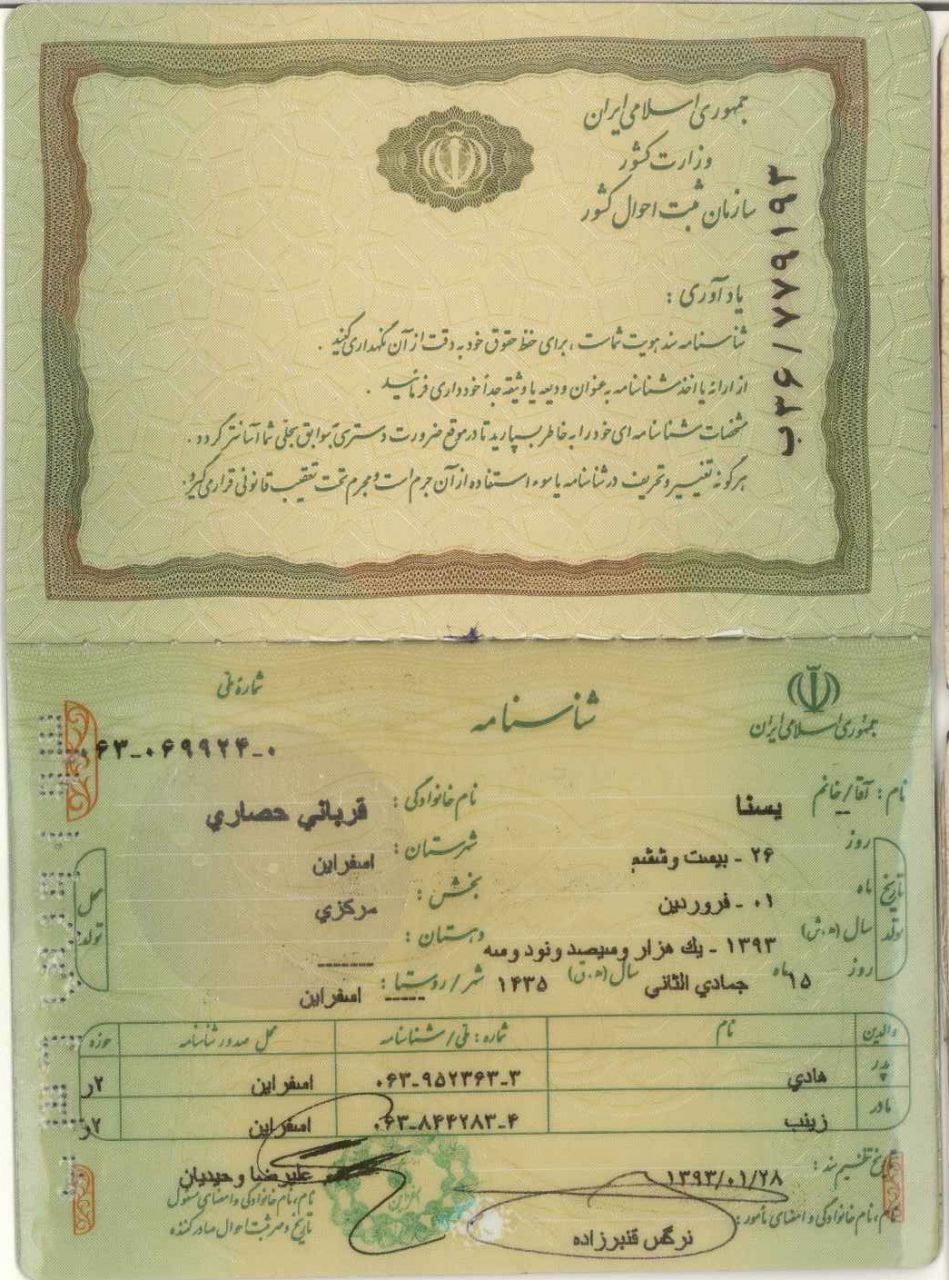 جمهوری اسلامی ایران
وزارت کشور
سازمان ثبت احوال کشور
ب۳۶/۷۷۹۱۹۳
یادآوری :
شناسنامه سند هویت شماست ، برای حفظ حقوق خود به دقت از آن نگهداری کنید .
از ارائه یا اخذ شناسنامه به عنوان ودیعه یا وثیقه جداً خودداری فرمائید .
مشخصات شناسنامه ای خود را به خاطر بسپارید تا در موقع ضرورت دسترسی بسوابق سجلی شما آسانتر گردد .
هرگونه تغییر و تحریف در شناسنامه یا سوء استفاده از آن جرم است و مجرم تحت تعقیب قانونی قرار می گیرد .
جمهوری اسلامی ایران
شناسنامه
شماره ملی
۰۶۳-۰۶۹۹۲۴-۰
نام : آقا/خانم يسنا
نام خانوادگی : قرباني حصاري
تاریخ تولد
روز ۲۶ - بيست وششم
ماه ۰۱ - فروردين
سال (ه.ش) ۱۳۹۳ - يك هزار وسيصد ونود وسه
روز ۱۵ ماه جمادي الثاني سال (ه.ق) ۱۴۳۵
محل تولد
شهرستان : اسفراين
بخش : مركزي
دهستان : ------
شهر/روستا : اسفراين
والدین نام شماره : ملی/شناسنامه محل صدور شناسنامه حوزه
پدر هادي ۰۶۳-۹۵۲۳۶۳-۳ اسفراين ۲ر
مادر زينب ۰۶۳-۸۴۴۲۸۳-۴ اسفراين ۲ر
تاریخ تنظیم سند : ۱۳۹۳/۰۱/۲۸
نام، نام خانوادگی و امضای مأمور :
نرگس قنبرزاده
عليرضا وحيديان
نام، نام خانوادگی و امضای مسئول
تاریخ و مهر ثبت احوال صادر کننده